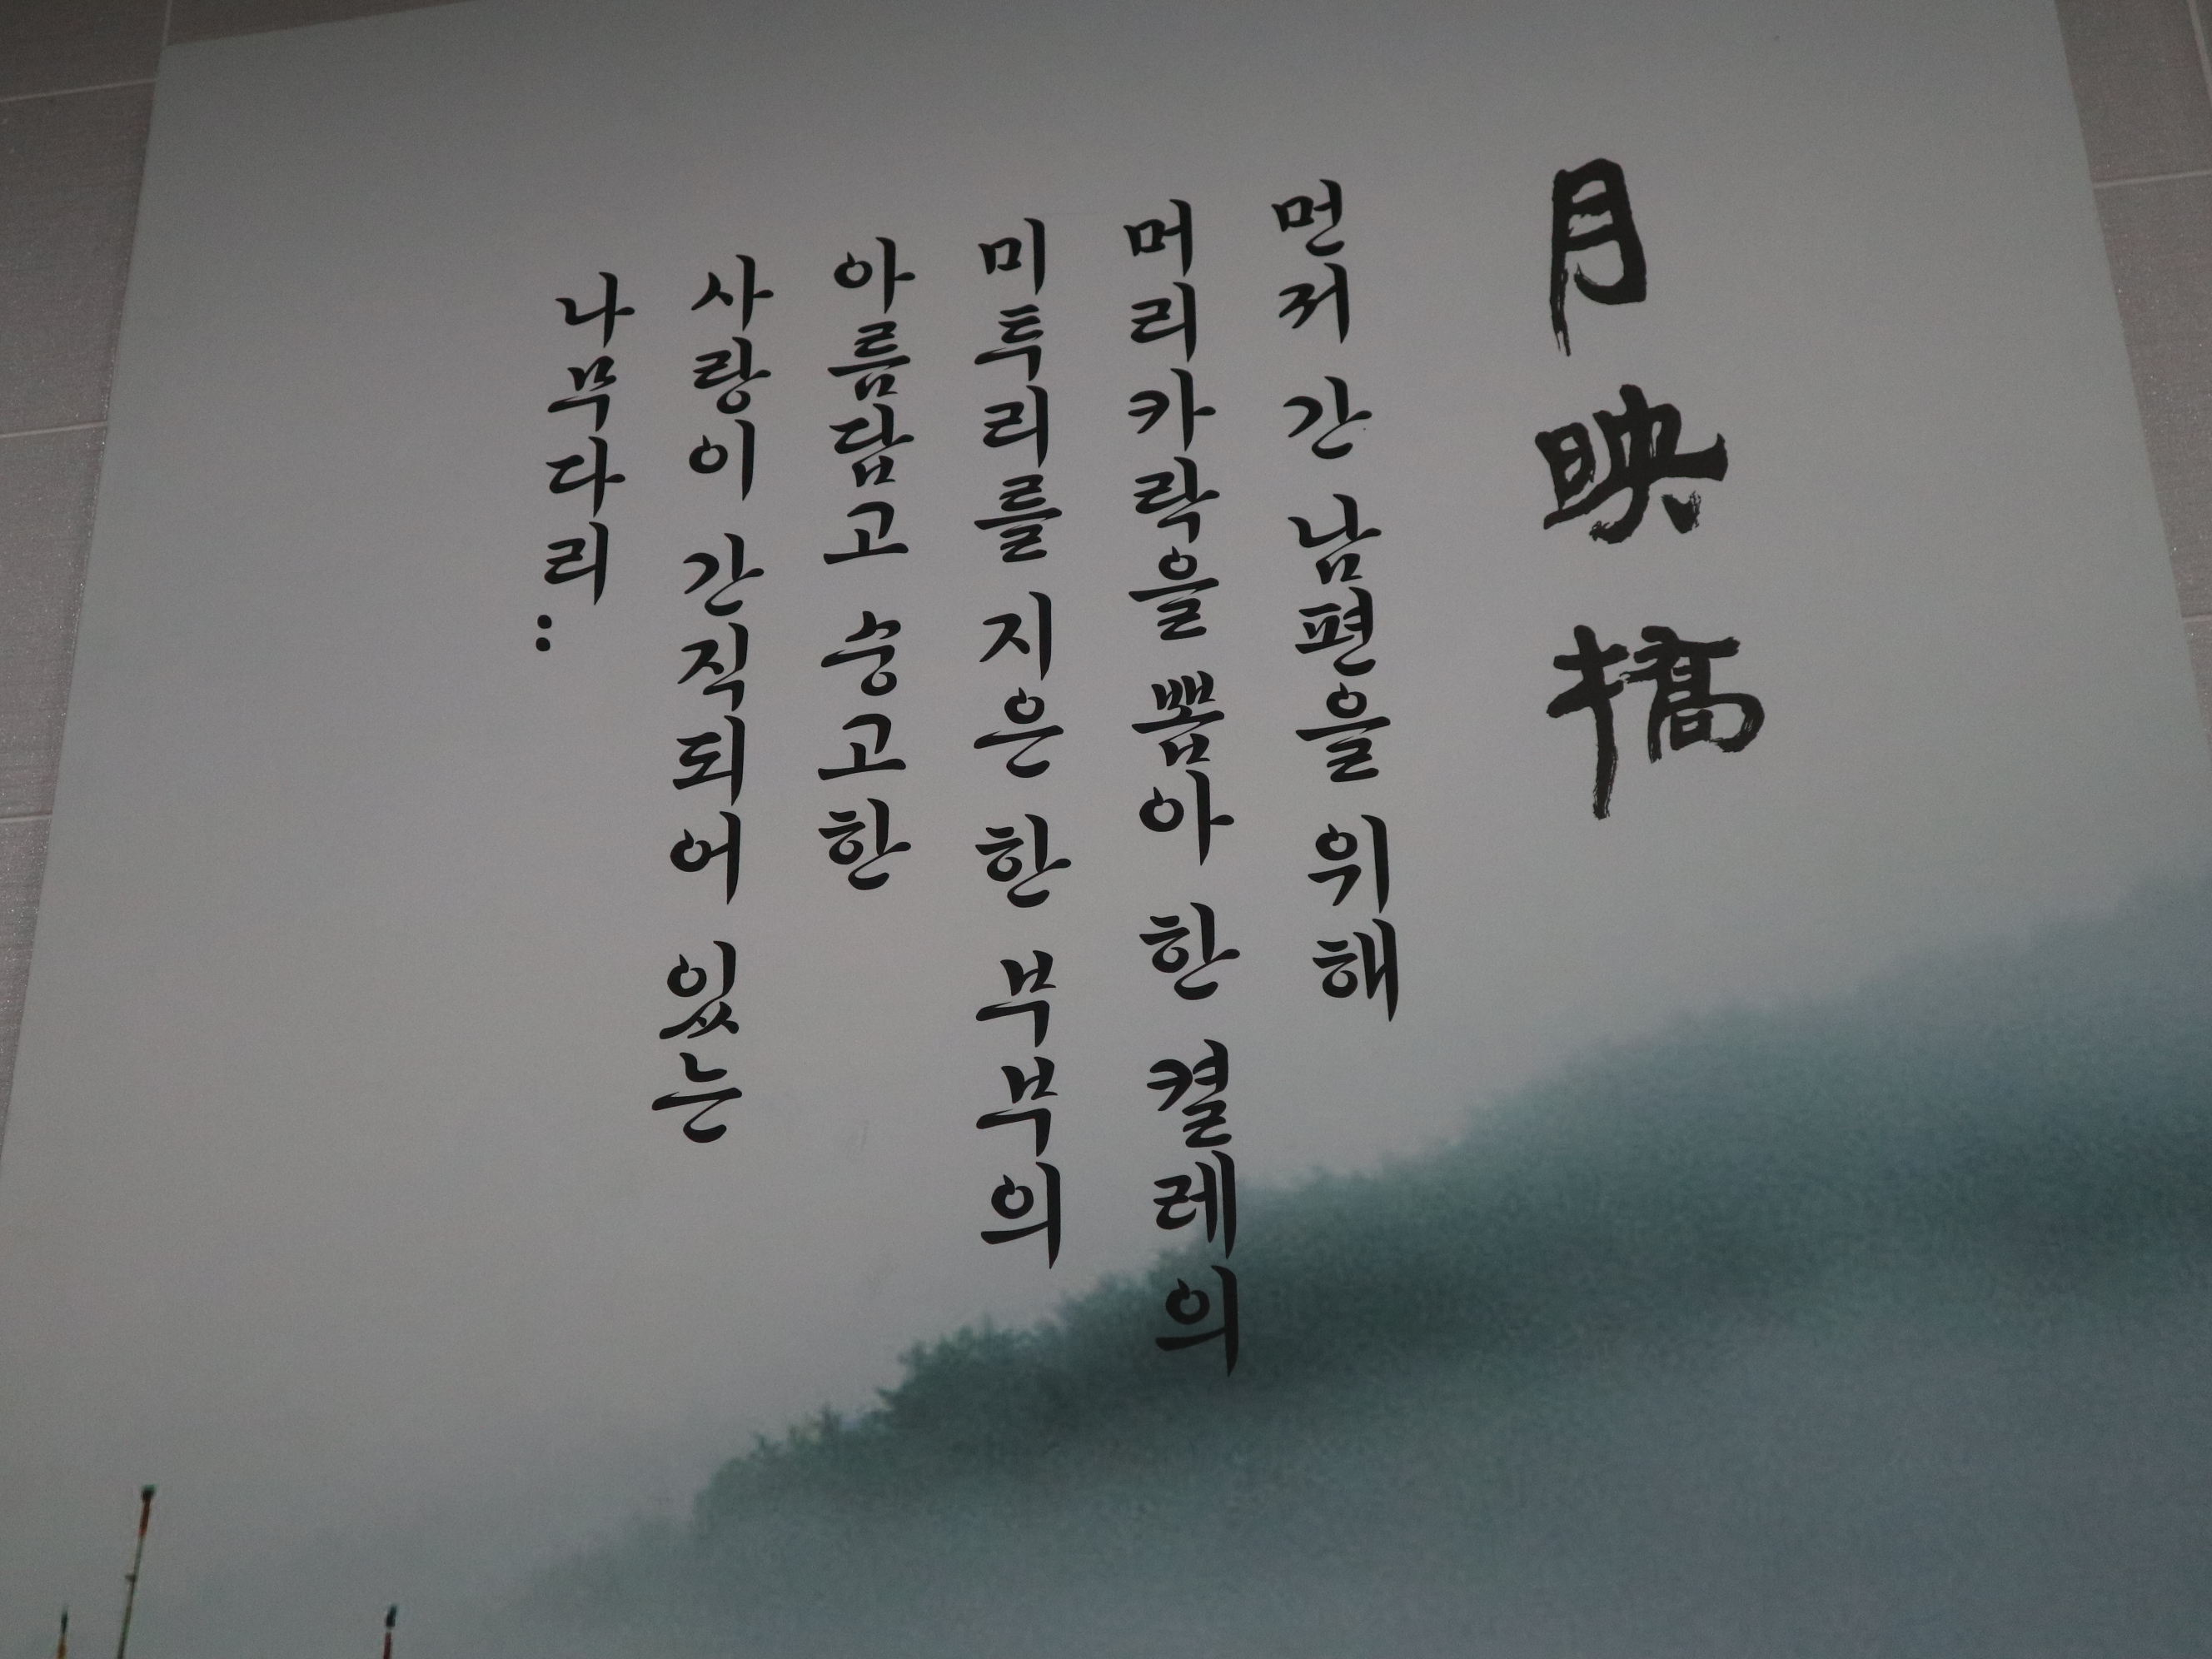 月映橋
먼저 간 남편을 위해
머리카락을 뽑아 한 켤레의
미투리를 지은 한 부부의
아름답고 숭고한
사랑이 간직되어 있는
나무다리: